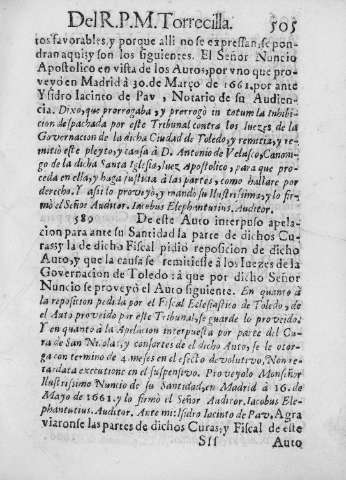 Del R. P. M. Torrecilla. 505
tos favorables, y porque alli no se expressan, se pon-
dran aqui; y son los siguientes. El Señor Nuncio
Apostolico en vista de los Autos, por vno que pro-
veyò en Madrid à 30. de Março de 1661. por ante
Ysidro Iacinto de Pav, Notario de su Audien-
cia. Dixo, que prorrogaba, y prorrogò in totum la inhibi-
cion despachada por este Tribunal contra los Iuezes de la
Governacion de la dicha Ciudad de Toledo, y remitia, y re-
mitiò este pleyto, y causa à D. Antonio de Velasco, Canoni-
go de la dicha Santa Iglesia, Iuez Apostolico, para que pro-
ceda en ella, y haga justicia à las partes, como hallare por
derecho. Y assi lo proveyò, y mandò su Ilustrissima, y lo fir-
mò el Señor Auditor. Iacobus Elephantutius, Auditor.
589 De este Auto interpuso apela-
cion para ante su Santidad la parte de dichos Cu-
ras; y la de dicho Fiscal pidiò reposicion de dicho
Auto, y que la causa se remitiesse à los Iuezes de la
Governacion de Toledo: à que por dicho Señor
Nuncio se proveyò el Auto siguiente. En quanto à
la reposicion pedida por el Fiscal Eclesiastico de Toledo, de
el Auto proveido por este Tribunal, se guarde lo proveido:
Y en quanto à la Apelacion interpuesta por parte del Cu-
ra de San Nicolas, y consortes de el dicho Auto, se le otor-
ga con termino de 4. meses en el efecto devolutivo, Non re-
tardata executione en el suspensivo. Proveyolo Monseñor
Ilustrissimo Nuncio de su Santidad, en Madrid à 16. de
Mayo de 1661. y lo firmò el Señor Auditor. Iacobus Ele-
phantutius. Auditor. Ante mi: Isidro Iacinto de Pav, Agra
viaronse las partes de dichos Curas, y Fiscal de este
Sss Auto